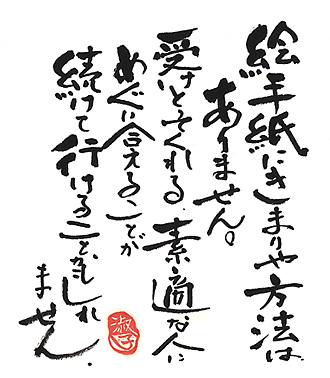 絵手紙にきまりや方法は
ありません。
受けとってくれる素適な人に
めぐり合えることが
続けて行けることかもしれ
ません.